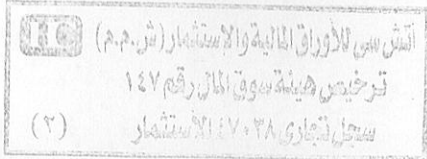 اتش سي للأوراق المالية والاستثمار (ش.م.م) HC
ترخيص هيئة سوق المال رقم ١٤٧
سجل تجاري ٤٧٠٣٨ الاستثمار (٣)